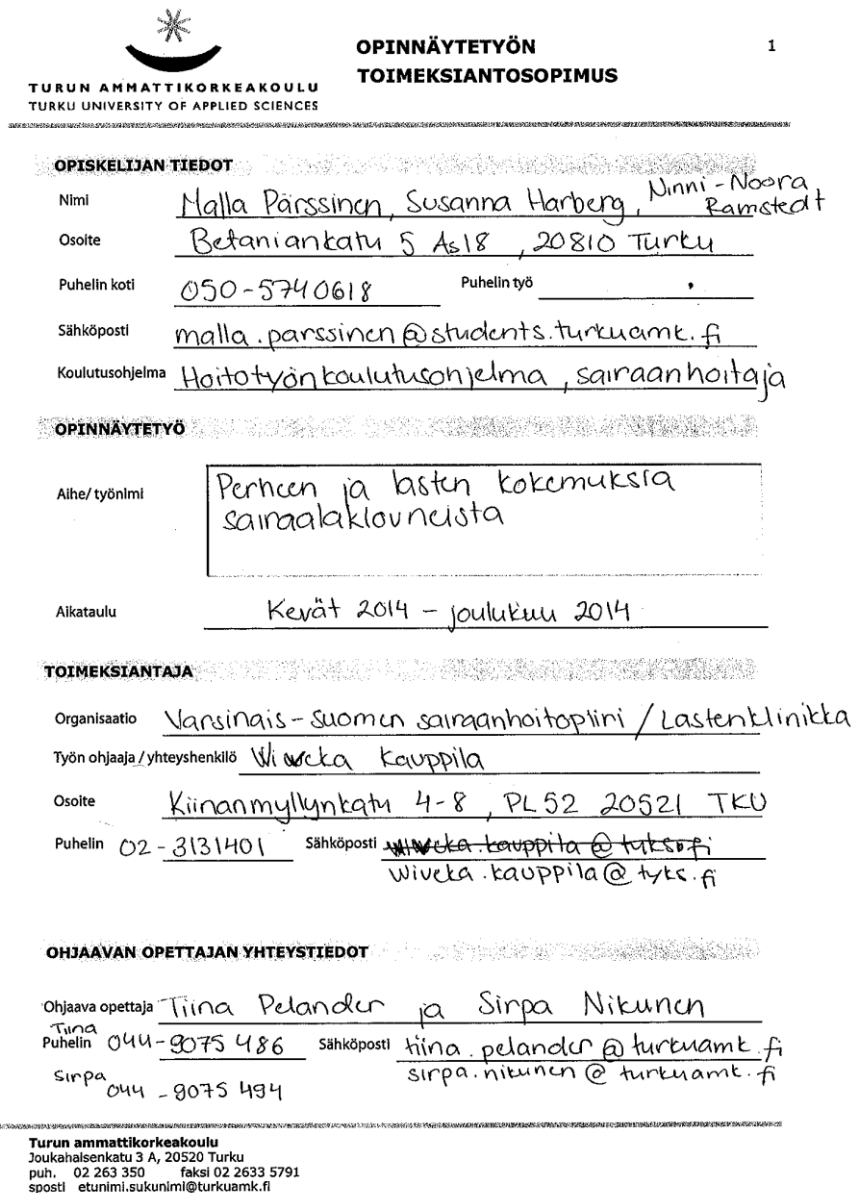 TURUN AMMATTIKORKEAKOULU
TURKU UNIVERSITY OF APPLIED SCIENCES
OPINNÄYTETYÖN
TOIMEKSIANTOSOPIMUS
1
OPISKELIJAN TIEDOT
Nimi Malla Pärssinen, Susanna Harberg, Ninni-Noora Ramstedt
Osoite Betaniankatu 5 As 18, 20810 Turku
Puhelin koti 050-5740618 Puhelin työ
Sähköposti malla.parssinen@students.turkuamk.fi
Koulutusohjelma Hoitotyön koulutusohjelma, sairaanhoitaja
OPINNÄYTETYÖ
Aihe/ työnimi Perheen ja lasten kokemuksia
sairaalaklovneista
Aikataulu Kevät 2014 - joulukuu 2014
TOIMEKSIANTAJA
Organisaatio Varsinais-Suomen sairaanhoitopiiri / Lastenklinikka
Työn ohjaaja / yhteyshenkilö Wiveka Kauppila
Osoite Kiinanmyllynkatu 4-8, PL 52 20521 TKU
Puhelin 02-3131401 Sähköposti wiveka.kauppila@tyks.fi
wiveka.kauppila@tyks.fi
OHJAAVAN OPETTAJAN YHTEYSTIEDOT
Ohjaava opettaja Tiina Pelander ja Sirpa Nikunen
Tiina
Puhelin 044-9075 486 Sähköposti tiina.pelander@turkuamk.fi
Sirpa 044-9075 494 sirpa.nikunen@turkuamk.fi
Turun ammattikorkeakoulu
Joukahaisenkatu 3 A, 20520 Turku
puh. 02 263 350 faksi 02 2633 5791
sposti etunimi.sukunimi@turkuamk.fi